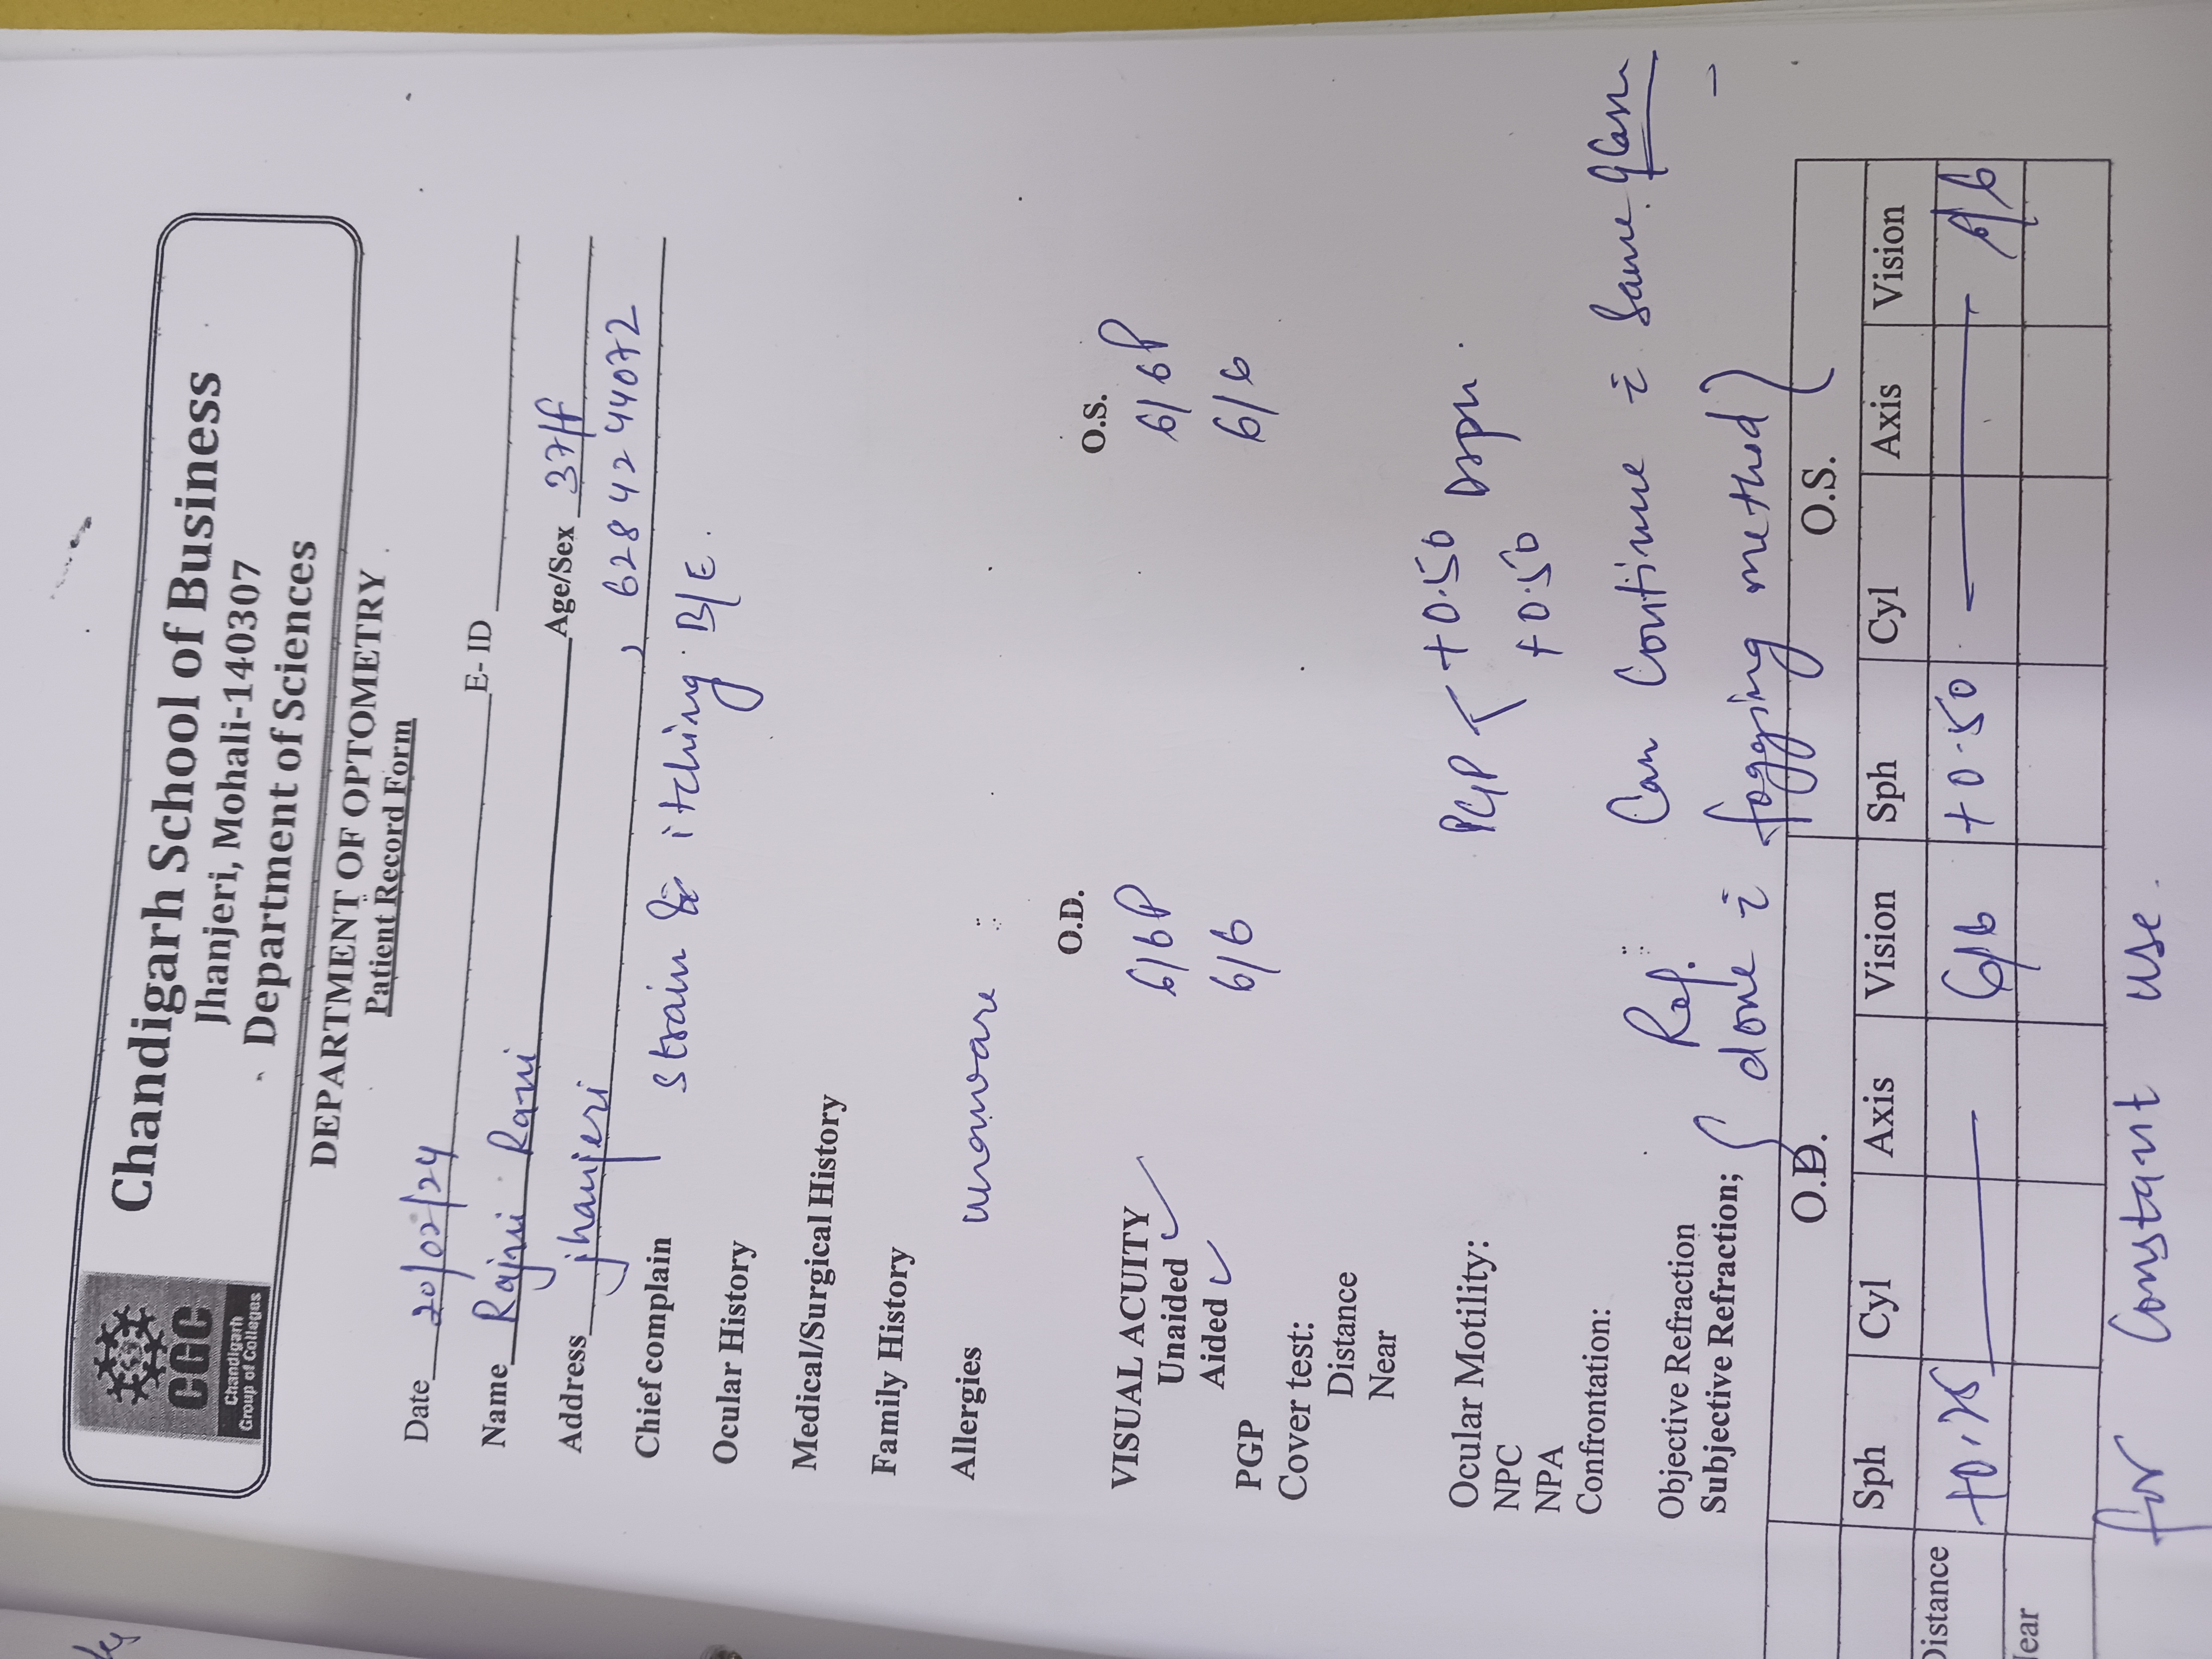 CGC
Chandigarh
Group of Colleges
Chandigarh School of Business
Jhanjeri, Mohali-140307
Department of Sciences
DEPARTMENT OF OPTOMETRY
Patient Record Form
Date 20/02/24
E- ID
Name Rajni Rani
Age/Sex 37/f
Address jhanjeri, 6284244072
Chief complain strain & itching B/E.
Ocular History
Medical/Surgical History
Family History
Allergies unaware
O.D. O.S.
VISUAL ACUITY
Unaided ✓ 6/6P 6/6P
Aided ✓ 6/6 6/6
PGP
Cover test:
Distance
Near
Ocular Motility:
PGP < +0.50 Dsph.
+0.50
NPC
NPA
Confrontation:
Can Continue c̄ Same glass
Objective Refraction Ref.
Subjective Refraction; { done c̄ fogging method }
O.D. O.S.
Sph Cyl Axis Vision Sph Cyl Axis Vision
Distance +0.75 — 6/6 +0.50 — 6/6
Near
for Constant use.